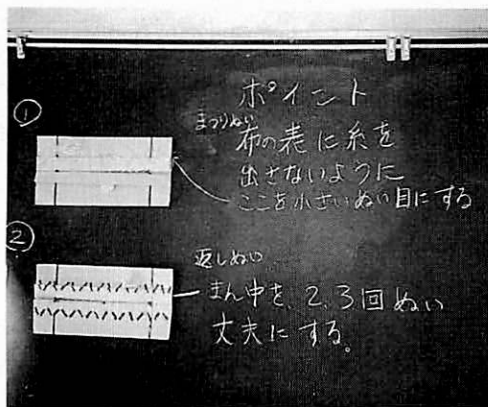 ポイント
①
まつりぬい
布の表に糸を
出さないように
ここを小さいぬい目にする
②
返しぬい
まん中を2、3回ぬい
丈夫にする。